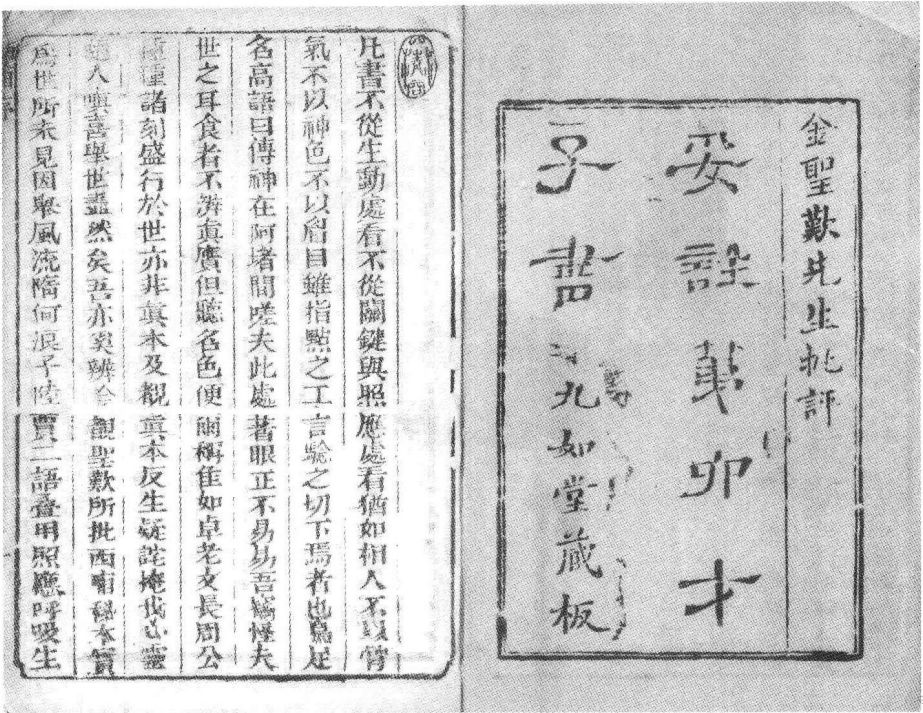 金聖歎先生批評
妥註第六才
子書 九如堂藏板
凡書不從生動處看不從關鍵與照應處看猶如相人不以骨
氣不以神色不以眉目雖指點之工言驗之切下焉者也烏足
名高語曰傳神在阿堵間嗟夫此處著眼正不易易吾竊怪夫
世之耳食者不辨眞贋但聽名色便爾稱佳如卓老文長周公
種種諸刻盛行於世亦非眞本及覩眞本反生疑詫掩我心靈
隨人嗔喜舉世盡然矣吾亦奚辨今覩聖歎所批西廂秘本實
爲世所未見因舉風流隋何浪子陸賈二語叠用照應呼吸生